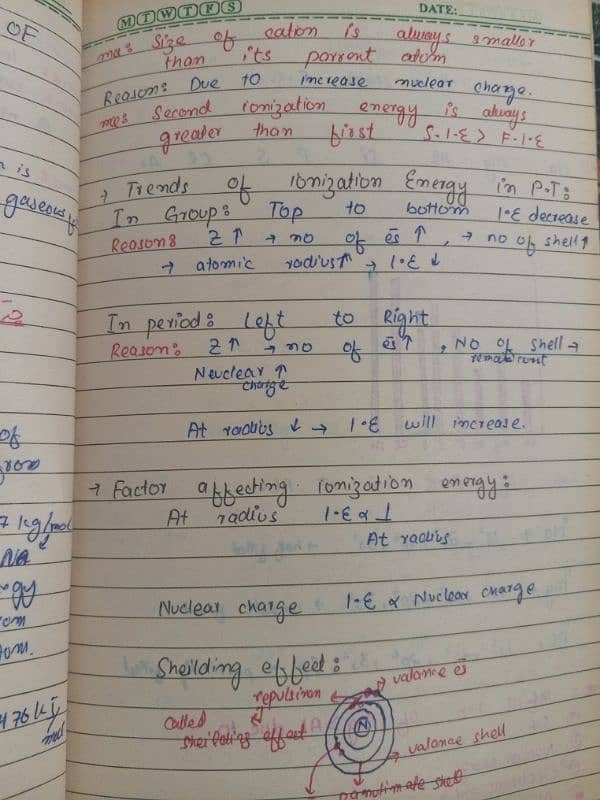 OF
M T W T F S
DATE:
mcq: Size of cation is always smaller
than its parrent atom
Reason: Due to increase nuclear charge.
mcq: Second ionization energy is always
greater than first S.I.E > F.I.E
n is
gaseous
→ Trends of Ionization Energy in P.T:
In Group: Top to bottom I.E decrease
Reason: Z ↑ → no of ēs ↑ , → no of shell ↑
→ atomic radius ↑ → I.E ↓
In period: Left to Right
Reason: Z ↑ → no of ēs ↑ , No of shell →
remain
Neuclear ↑
charge
At radius ↓ → I.E will increase.
of
→ Factor affecting ionization energy:
At radius I.E α 1
At radius
7 kg/mol
NA
Nuclear charge I.E α Nuclear charge
Sheilding effect:
valance ēs
repulsinon
called
sheilding effect
N
valance shell
476 kJ
mol
penultimate shell